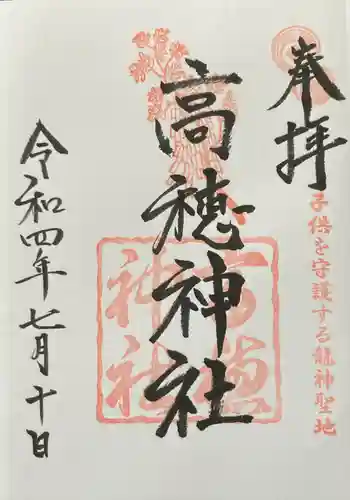 奉拝
子供を守護する龍神聖地
高穂神社
高穂神社
令和四年七月十日